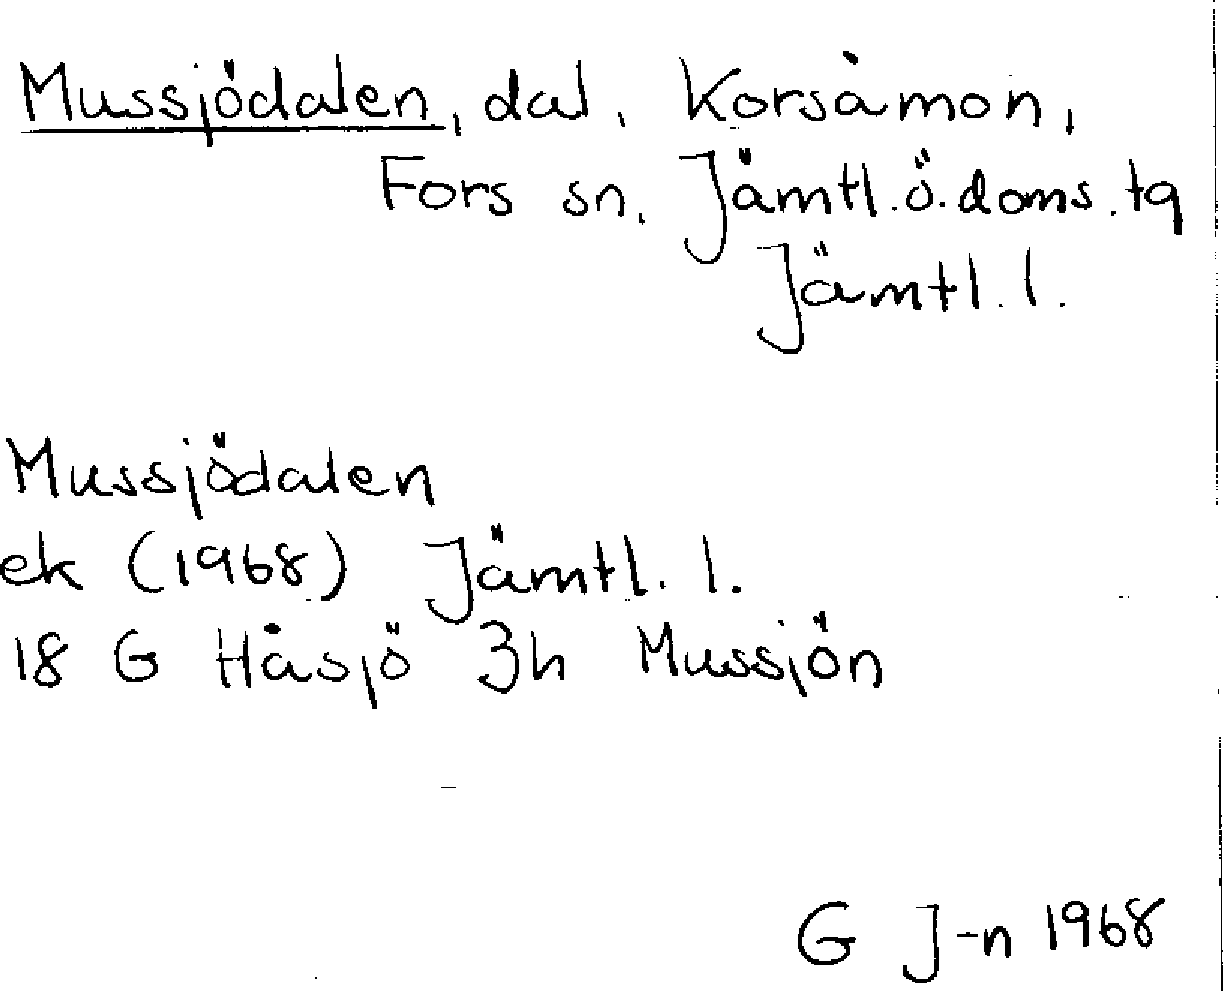 Mussjödalen, dal, Korsåmon,
Fors sn, Jämtl.ö.doms.tg
Jämtl.l.
Mussjödalen
ek (1968) Jämtl. l.
18 G Håsjö 3h Mussjön
G J-n 1968